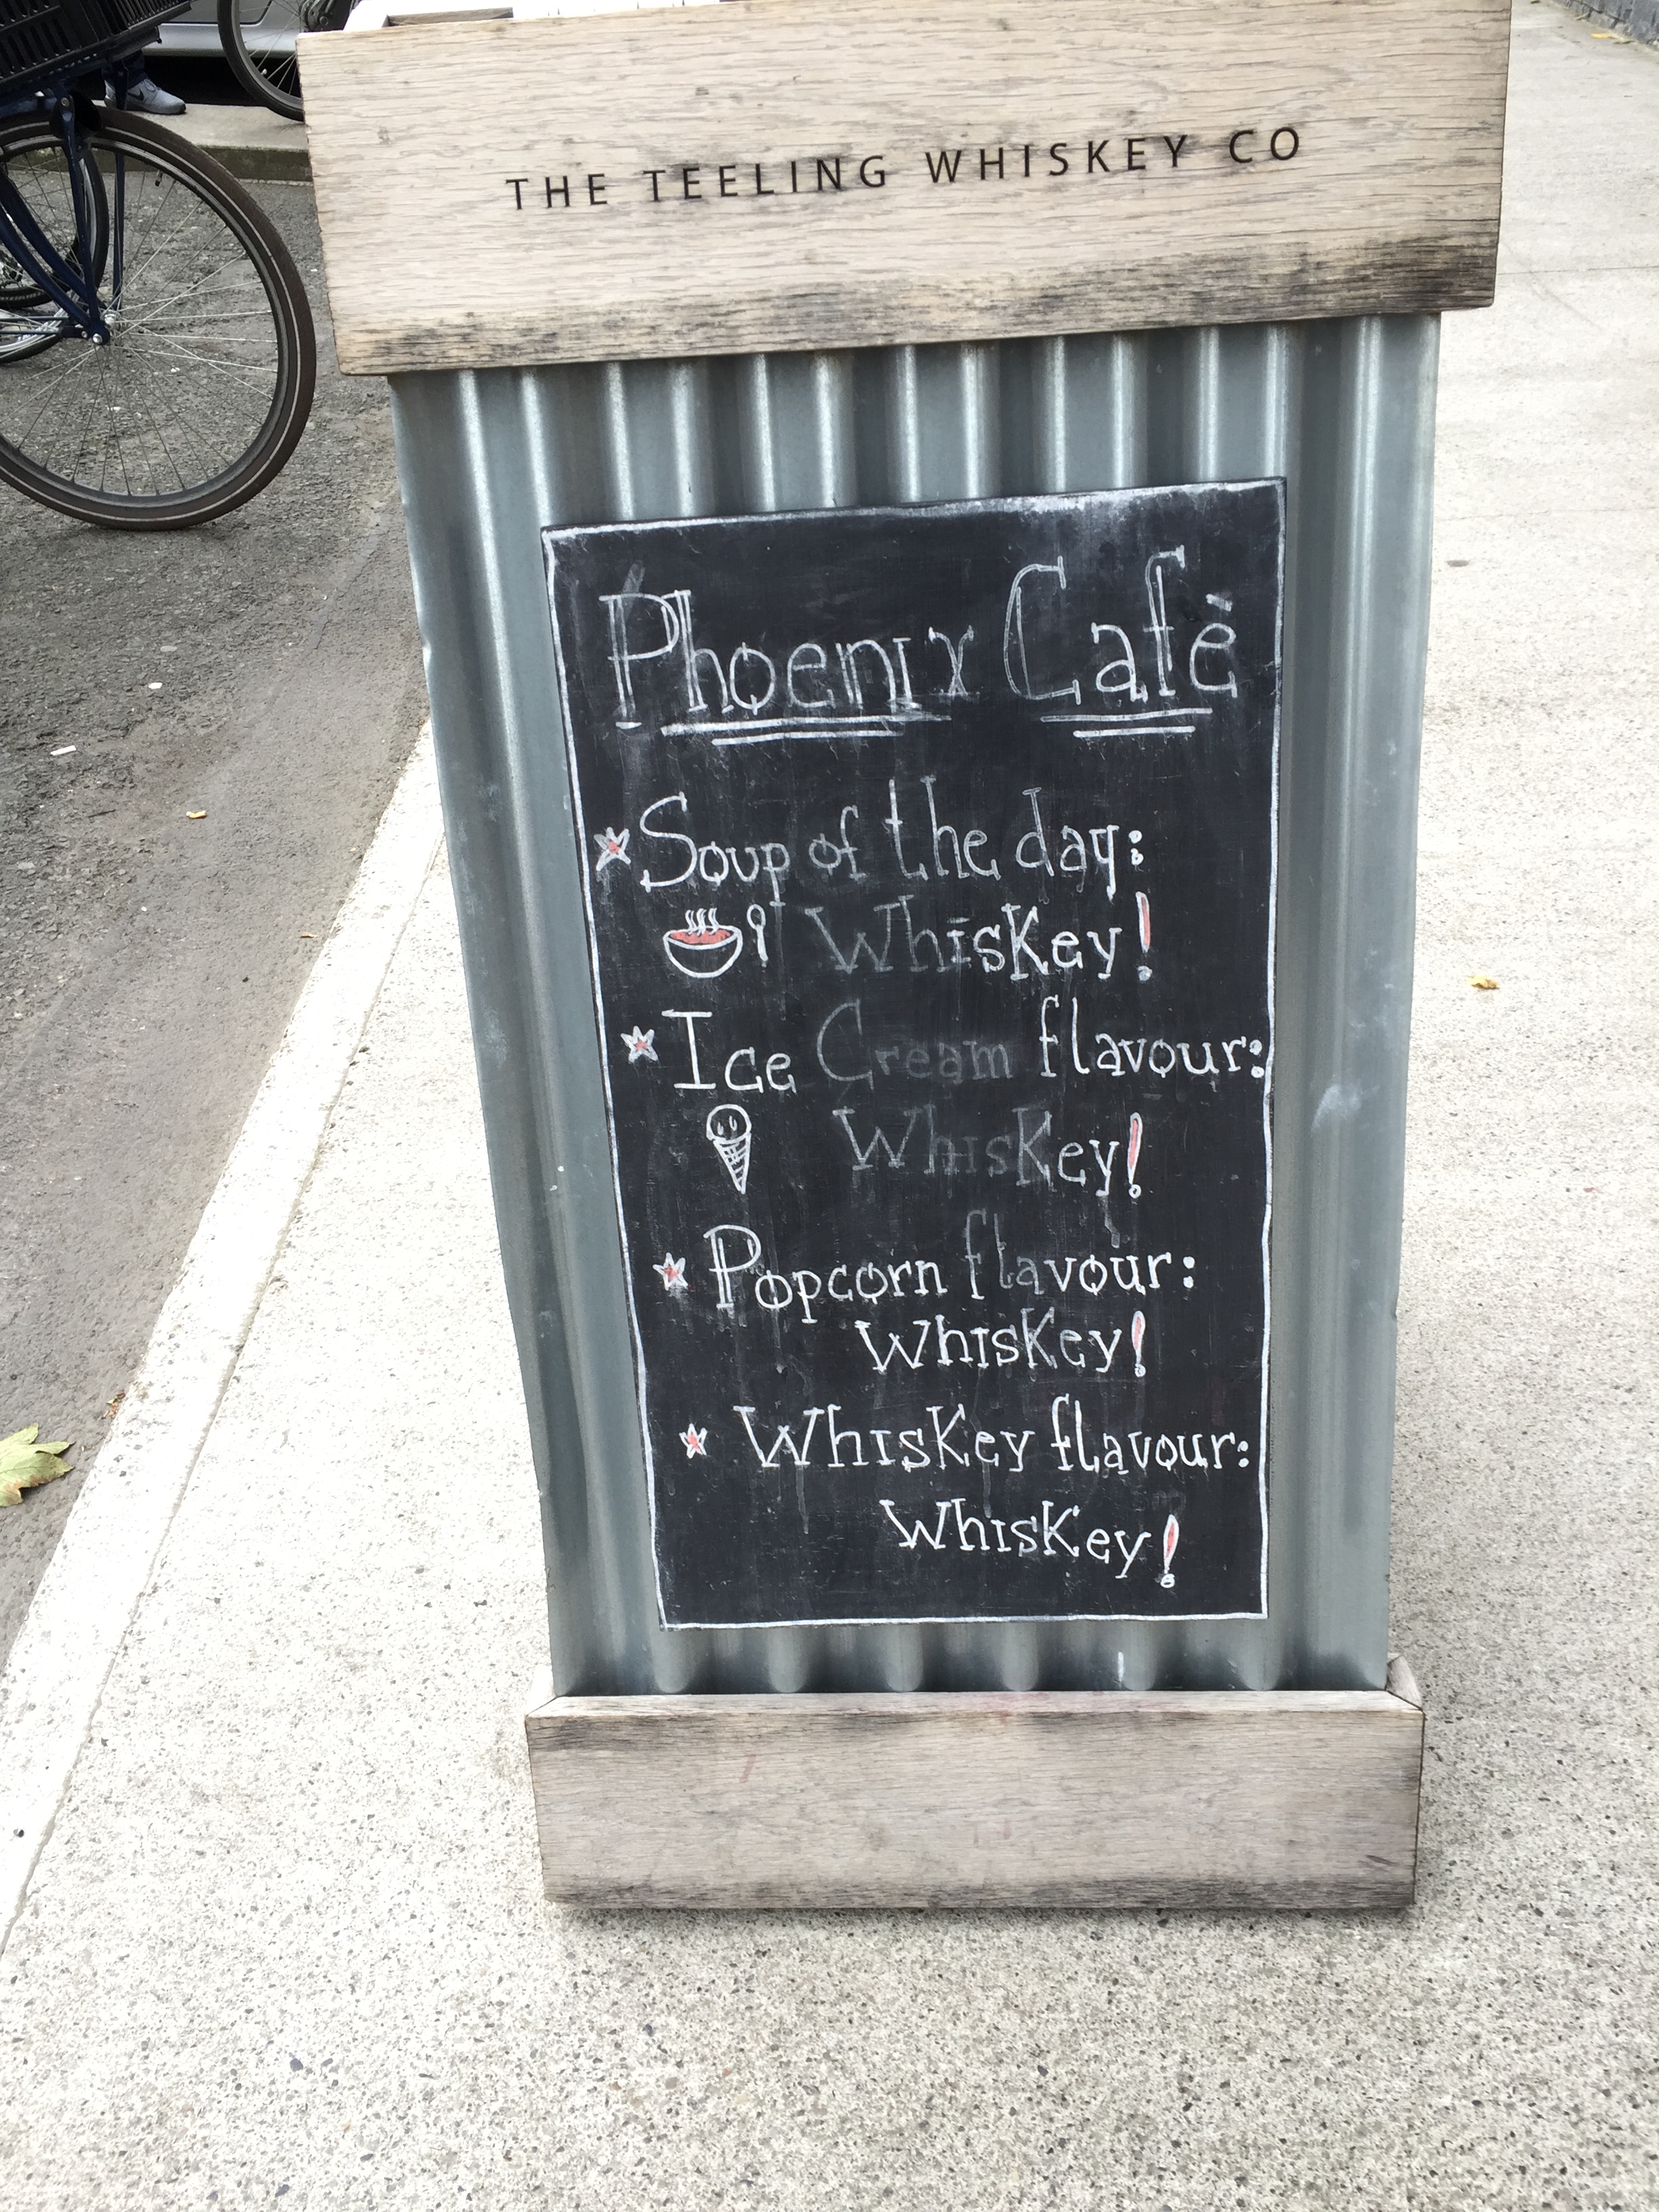 THE TEELING WHISKEY CO
Phoenix Cafè
Soup of the day:
Whiskey!
Ice Cream flavour:
Whiskey!
Popcorn flavour:
Whiskey!
Whiskey flavour:
Whiskey!